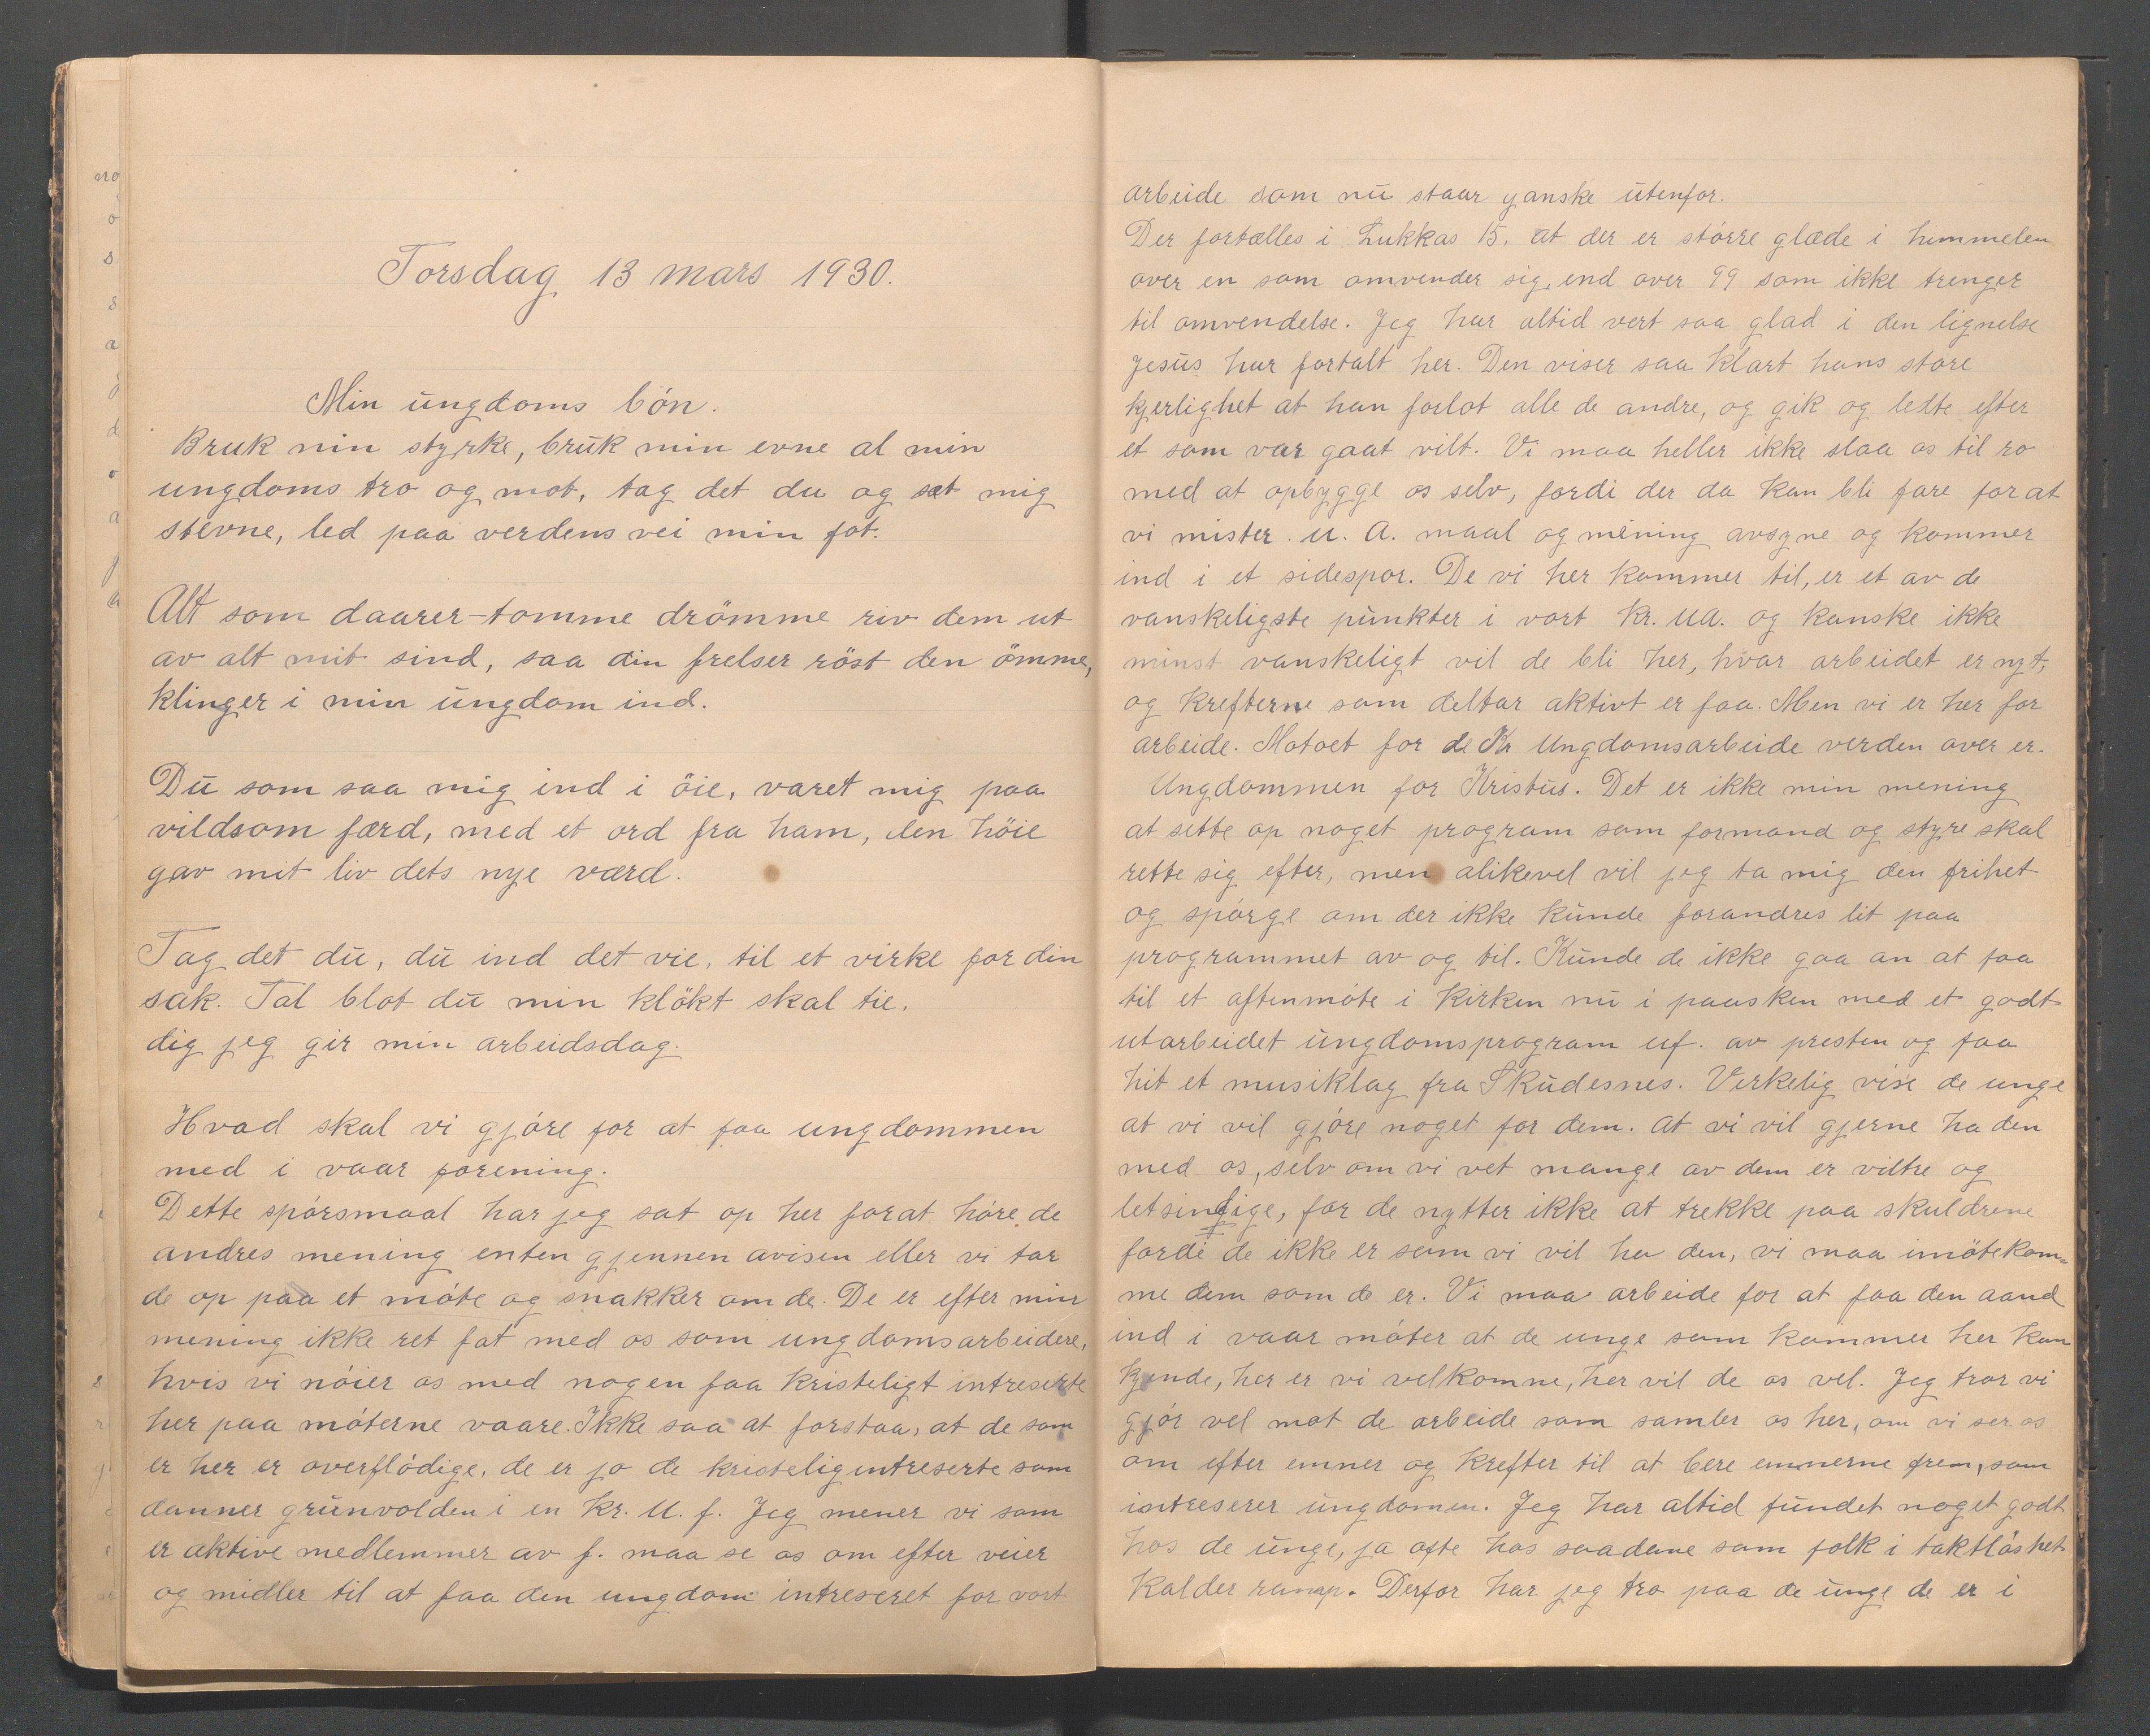 Torsdag 13 mars 1930.
Min ungdoms bön.
Bruk min styrke, bruk min evne al min
ungdoms tro og mot, tag det du og sæt mig
stevne, led paa verdens vei min fot.
Alt som daarer-tomme drömme riv dem ut
av alt mit sind, saa din frelser röst den ömme,
klinger i min ungdom ind.
Du som saa mig ind i öie, varet mig paa
vildsom færd, med et ord fra ham, den höie
gav mit liv dets nye værd.
Tag det du, du ind det vie, til et virke for din
sak. Tal blot du min klökt skal tie.
dig jeg gir min arbeidsdag.
Hvad skal vi gjóre for at faa ungdommen
med i vaar forening.
Dette spórsmaal har jeg sat op her forat hóre de
andres mening enten gjennen avisen eller vi tar
de op paa et móte og snakker om de. De er efter min
mening ikke ret fat med os som ungdomsarbeidere,
hvis vi nóier os med nogen faa kristeligt intreserte
her paa móterne vaare. Ikke saa at forstaa, at de som
er her er overflódige, de er jo de kristelig intreserte som
danner grunvolden i en Kr. U. f. Jeg mener vi som
er aktive medlemmer av f. maa se os om efter veier
og midler til at faa den ungdom intreseret for vort
arbeide som nu staar ganske utenfor.
Der fortælles i Lukkas 15. at der er större glæde i himmelen
over en som omvender sig, end over 99 som ikke trenger
til omvendelse. Jeg har altid vert saa glad i den lignelse
Jesus har fortalt her. Den viser saa klart hans store
kjerlighet at han forlot alle de andre, og gik og ledte efter
et som var gaat vilt. Vi maa heller ikke slaa os til ro
med at opbygge os selv, fordi der da kan bli fare for at
vi mister u. a. maal og mening avsyne og kommer
ind i et sidespor. De vi her kommer til, er et av de
vanskeligste punkter i vort Kr. UA. og kanske ikke
minst vanskeligt vil de bli her, hvor arbeidet er nyt,
og krefterne som deltar aktivt er faa. Men vi er her for
arbeide. Motoet for de Kr Ungdomsarbeide verden over er.
Ungdommen for Kristus. Det er ikke min mening
at sette op noget program som formand og styre skal
rette sig efter, men alikevel vil jeg ta mig den frihet
og spórge om der ikke kunde forandres lit paa
programmet av og til. Kunde de ikke gaa an at faa
til et aftenmóte i kirken nu i paasken med et godt
utarbeidet ungdomsprogram uf. av presten og faa
hit et musiklag fra Skudesnes. Verkelig vise de unge
at vi vil gjóre noget for dem. at vi vil gjerne ha den
med os, selv om vi vet mange av dem er viltre og
letsindige, for de nytter ikke at trekke paa skuldrene
fordi de ikke er som vi vil ha den, vi maa imötekom-
me dem som de er. Vi maa arbeide for at faa den aand
ind i vaar móter at de unge som kommer her kan
kjende, her er vi velkomne, her vil de os vel. Jeg tror vi
gjór vel mot de arbeide som samler os her, om vi ser os
om efter emner og krefter til at bere emnerne frem, som
intreserer ungdomen. Jeg har altid fundet noget godt
hos de unge, ja ofte hos saadane som folk i taktlóshet
kalder ramp. Derfor har jeg tro paa de unge de er i